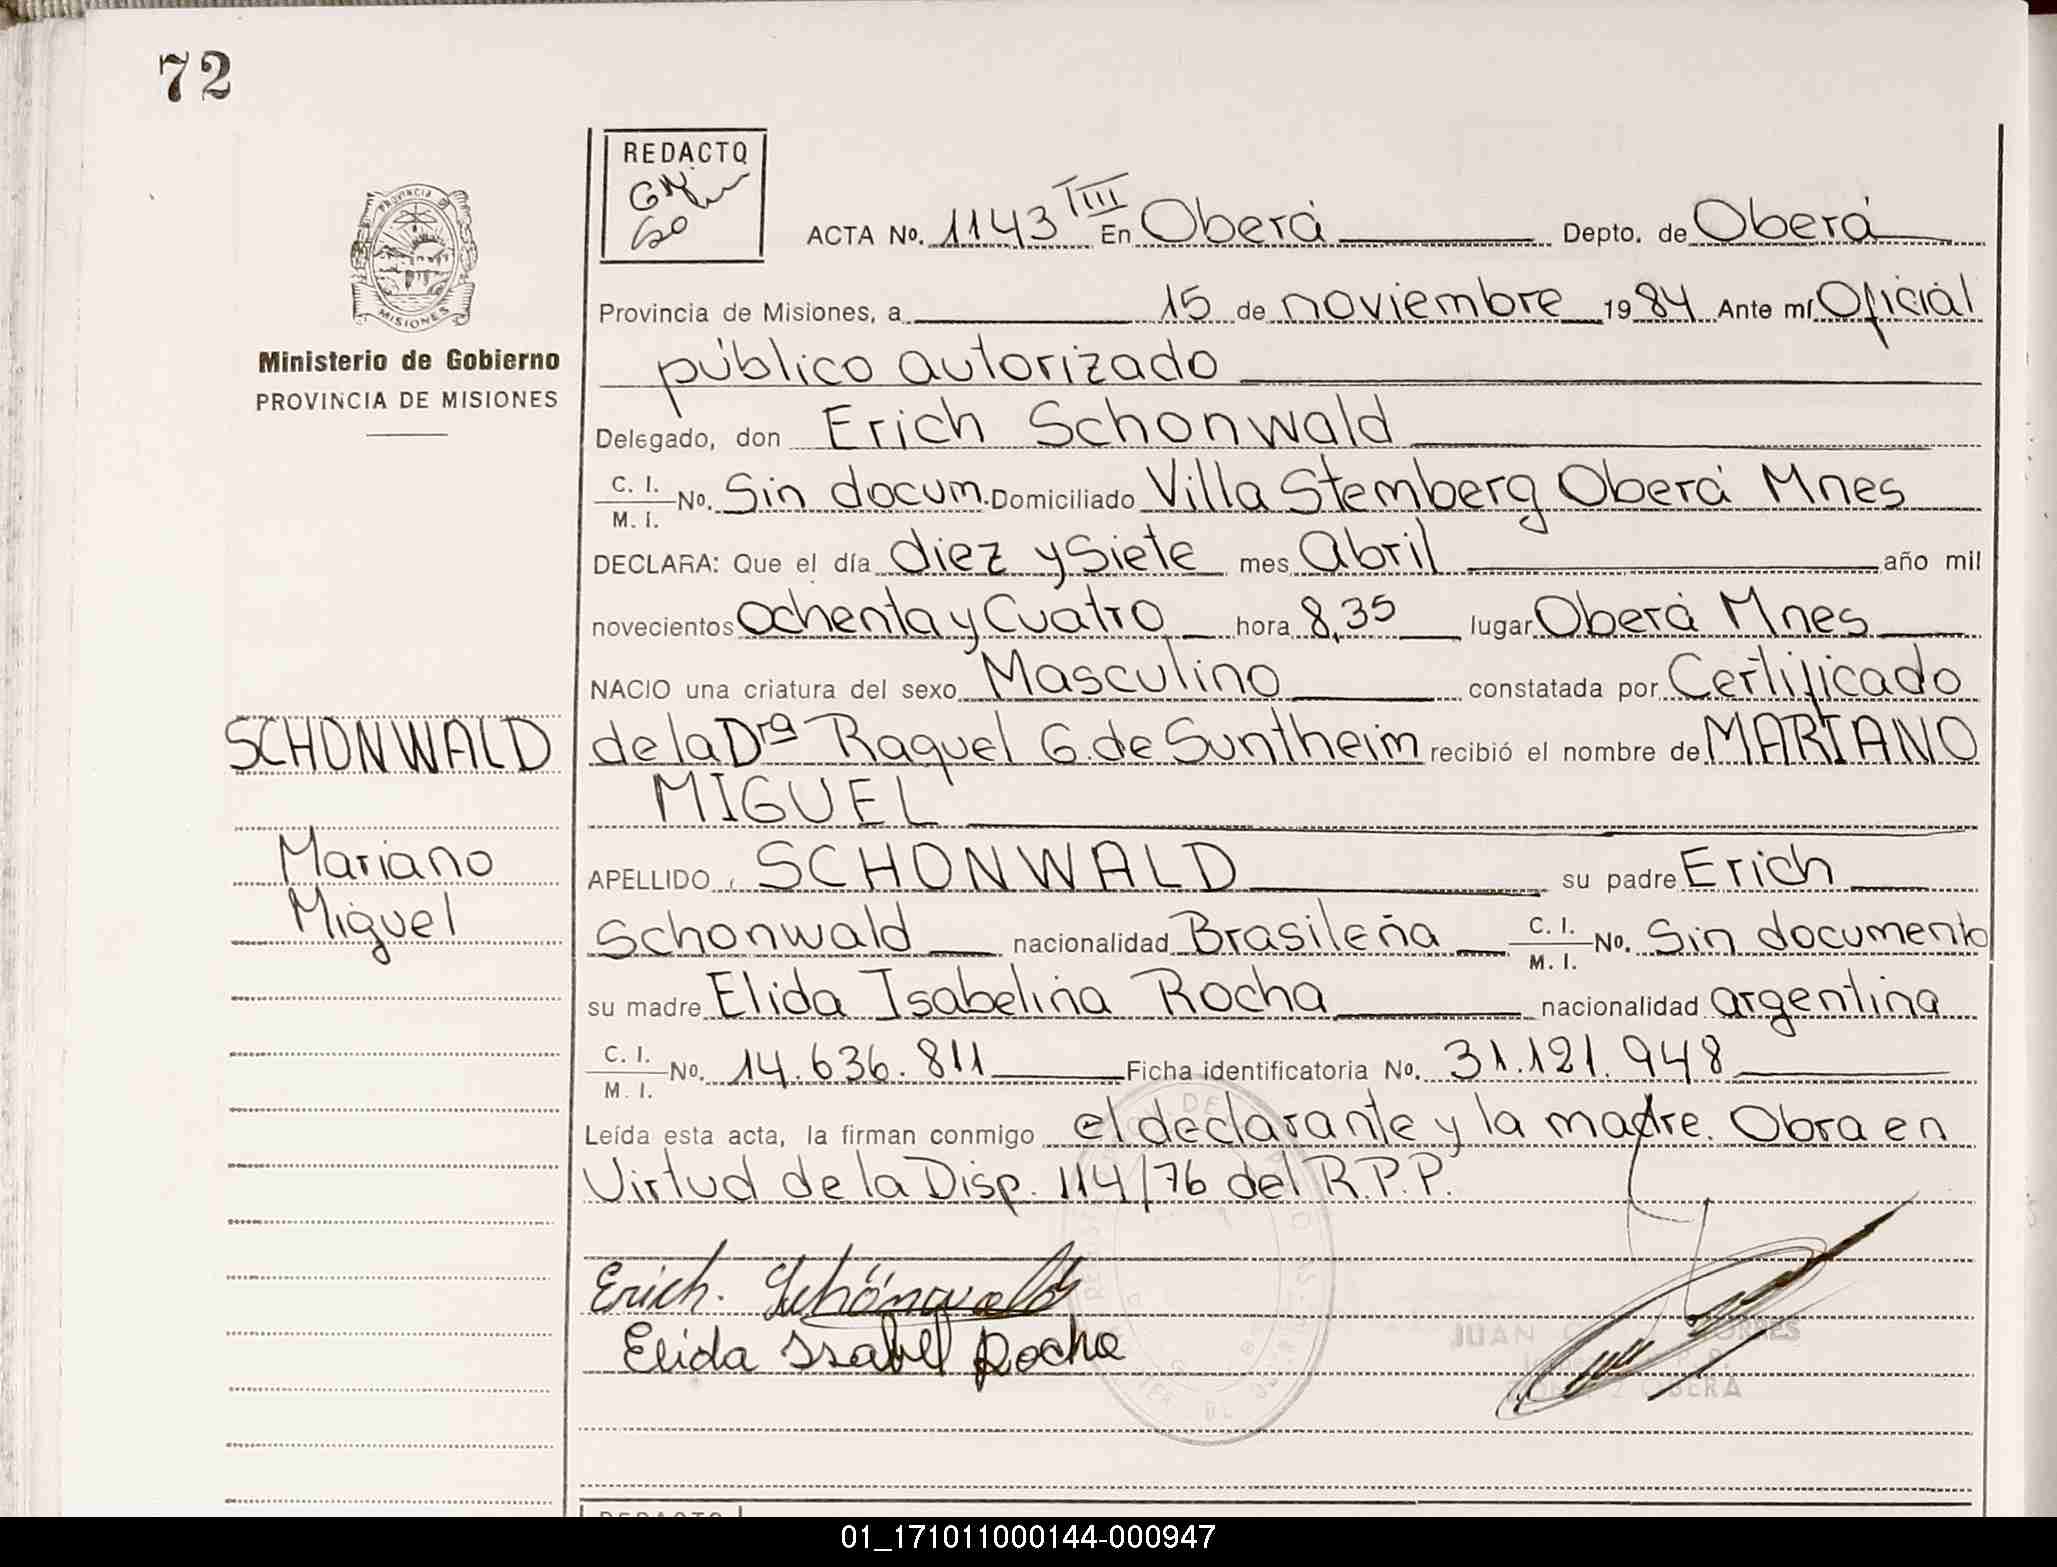 72
REDACTO
ACTA No. 1143 TIII En Oberá Depto. de Oberá
PROVINCIA
MISIONES
Provincia de Misiones, a 15 de noviembre 1984 Ante mí Oficial
Ministerio de Gobierno
PROVINCIA DE MISIONES
público autorizado
Delegado, don Erich Schonwald
C. I.
M. I. No. Sin docum. Domiciliado Villa Stemberg Oberá Mnes
DECLARA: Que el día diez y Siete mes Abril año mil
novecientos Ochenta y Cuatro hora 8,35 lugar Oberá Mnes
NACIO una criatura del sexo Masculino constatada por Certificado
SCHONWALD
de la Dra Raquel G. de Suntheim recibió el nombre de MARIANO
MIGUEL
Mariano
Miguel
APELLIDO SCHONWALD su padre Erich
Schonwald nacionalidad Brasileña C. I.
M. I. No. Sin documento
su madre Elida Isabelina Rocha nacionalidad argentina
C. I.
M. I. No. 14.636.811 Ficha identificatoria No. 31.121.948
Leída esta acta, la firman conmigo el declarante y la madre. Obra en
Virtud de la Disp. 114/76 del R.P.P.
Erich. Schönwald
Elida Isabel Rocha
JUAN
OBERA
01_171011000144-000947